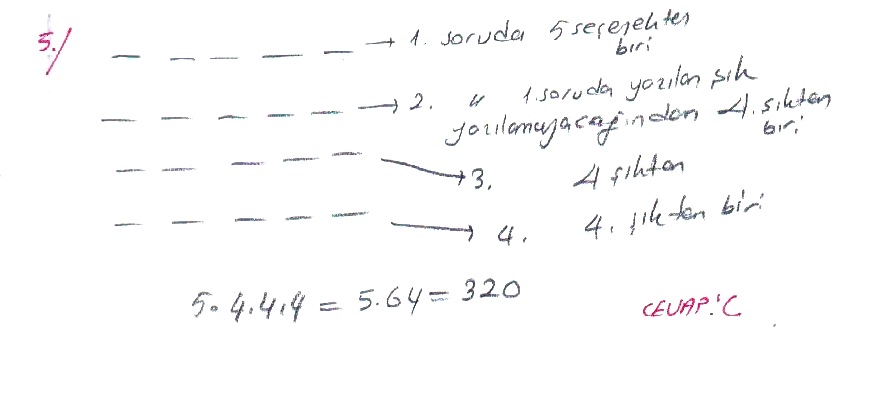 5./
→ 1. soruda 5 seçenekten
biri
→ 2. " 1.soruda yazılan şık
yazılamayacağından 4. şıktan
biri
→ 3. 4 şıktan
→ 4. 4. şıktan biri
5.4.4.4 = 5.64 = 320
CEVAP:'C